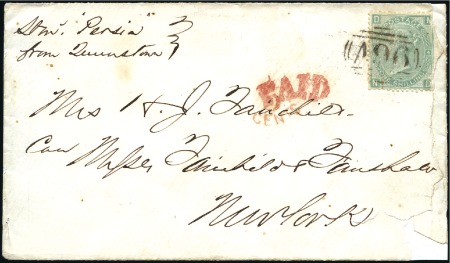 Stmr. Persia
from Queenstown
A96
PAID
CEN
Mrs H. J. Fairchild
Care Messrs Fairchild & Fanshaw
New York